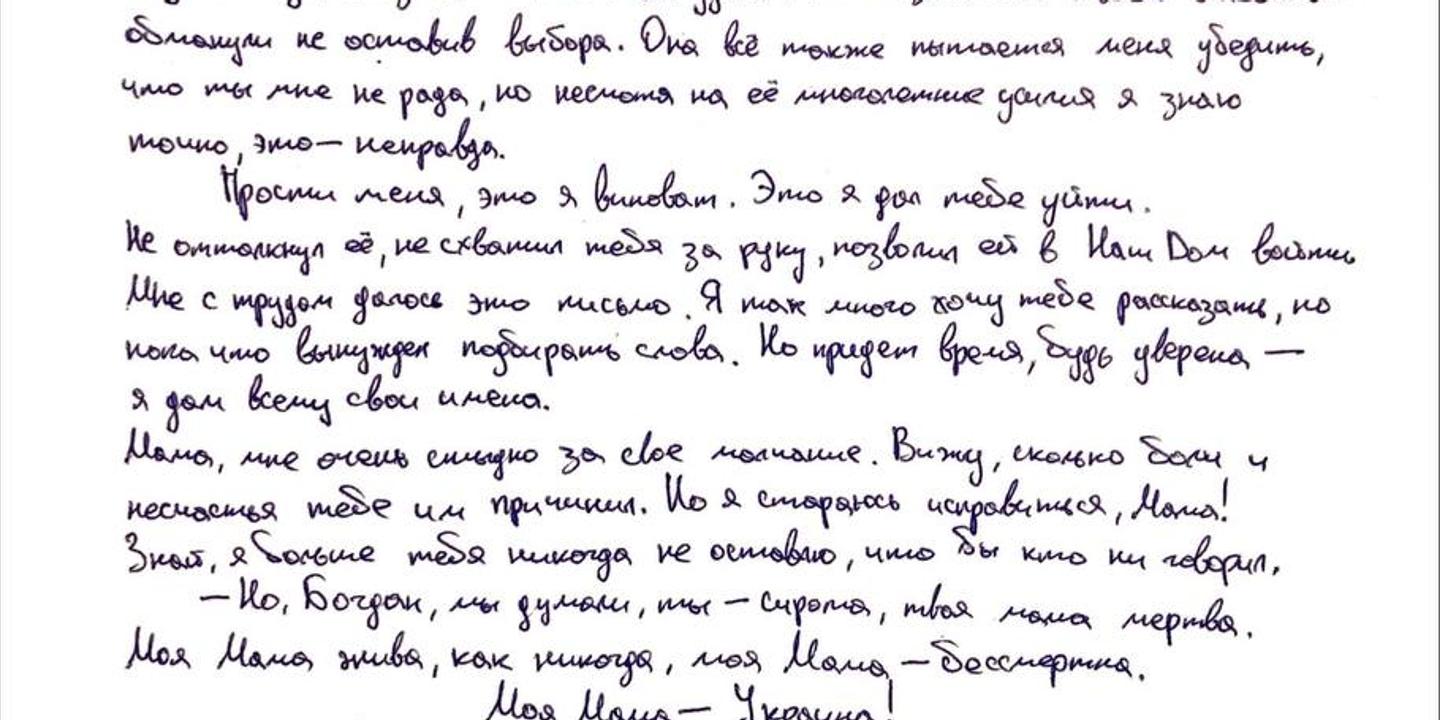 обманули не оставив выбора. Она всё также пытается меня убедить,
что ты мне не рада, но несмотя на её многолетние усилия я знаю
точно, это — неправда.
Прости меня, это я виноват. Это я дал тебе уйти.
Не оттолкнул её, не схватил тебя за руку, позволил ей в Наш Дом войти
Мне с трудом далось это письмо. Я так много хочу тебе рассказать, но
пока что вынужден подбирать слова. Но придет время, будь уверена —
я дам всему свои имена.
Мама, мне очень стыдно за свое молчание. Вижу, сколько боли и
несчастья тебе им причинил. Но я стараюсь исправиться, Мама!
Знай, я больше тебя никогда не оставлю, что бы кто ни говорил.
— Но, Богдан, мы думали, ты — сирота, твоя мама мертва.
Моя Мама жива, как никогда, моя Мама — бессмертна.
Моя Мама — Украина!